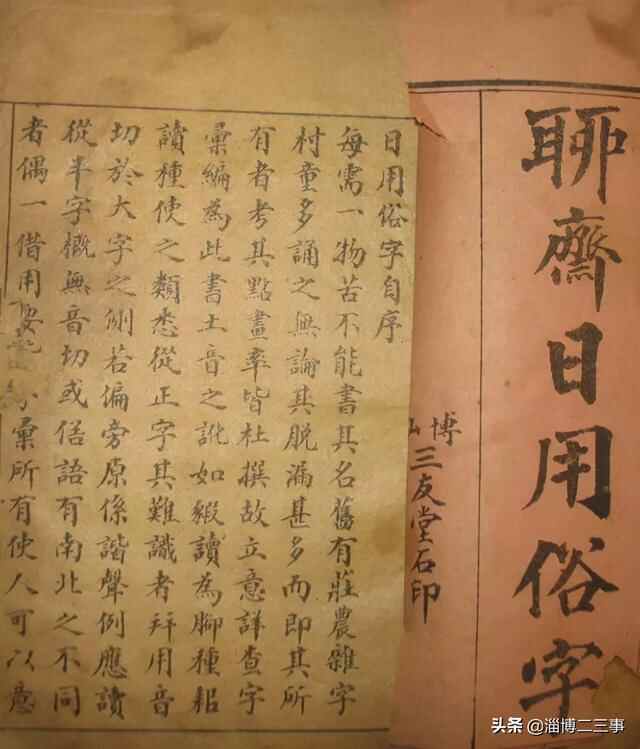 聊齋日用俗字
博山
三友堂石印
日用俗字自序
每需一物苦不能書其名舊有莊農雜字
村童多誦之無論其脫漏甚多而即其所
有者考其點畫率皆杜撰故立意詳查字
彙編為此書土音之訛如豭讀為腳種耜
讀種使之類悉從正字其難識者并用音
切於大字之側若偏旁原係諧聲例應讀
從半字概無音切或俗語有南北之不同
者偶一借用彙所有使人可以意
头条 @淄博二三事